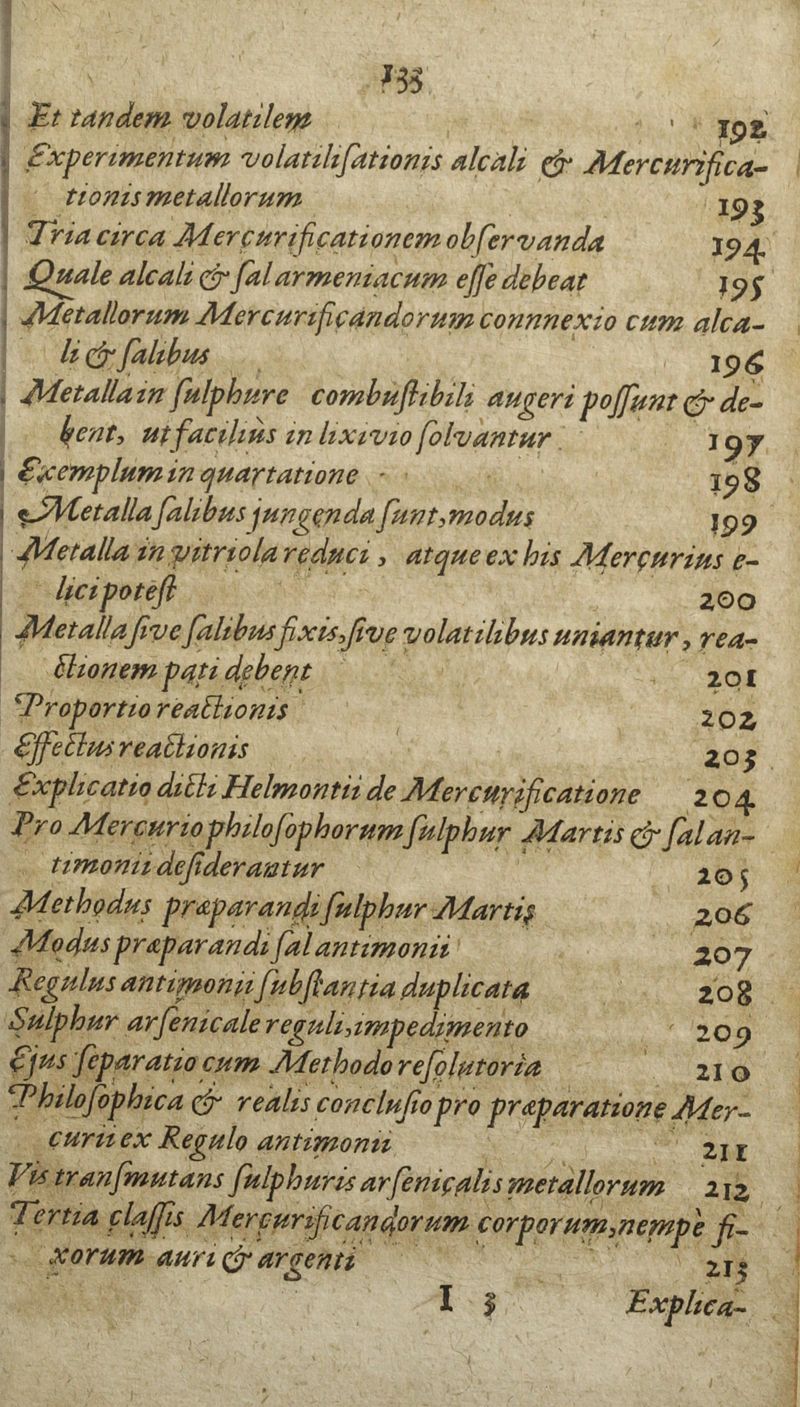 133
Et tandem volatilem 192
Experimentum volatilisationis alcali & Mercurifica-
tionis metallorum 193
Tria circa Mercurificationem obſervanda 194
Quale alcali & ſal armeniacum eſſe debeat 195
Metallorum Mercurificandorum connnexio cum alca-
li & ſalibus 196
Metalla in ſulphure combuſtibili augeri poſſunt & de-
bent, ut faciliùs in lixivio ſolvantur 197
Exemplum in quartatione 198
Metalla ſalibus jungenda ſunt, modus 199
Metalla in vitriola reduci, atque ex his Mercurius e-
lici poteſt 200
Metalla ſive ſalibus fixis, ſive volatilibus uniantur, rea-
ctionem pati debent 201
Proportio reactionis 202
Effectus reactionis 203
Explicatio dicti Helmontii de Mercurificatione 204
Pro Mercurio philoſophorum ſulphur Martis & ſal an-
timonii deſiderantur 205
Methodus præparandi ſulphur Martis 206
Modus præparandi ſal antimonii 207
Regulus antimonii ſubſtantia duplicata 208
Sulphur arſenicale reguli, impedimento 209
Ejus ſeparatio cum Methodo reſolutoria 210
Philoſophica & realis concluſio pro præparatione Mer-
curii ex Regulo antimonii 211
Vis tranſmutans ſulphuris arſenicalis metallorum 212
Tertia claſſis Mercurificandorum corporum, nempè fi-
xorum auri & argenti 213
I 3 Explica-